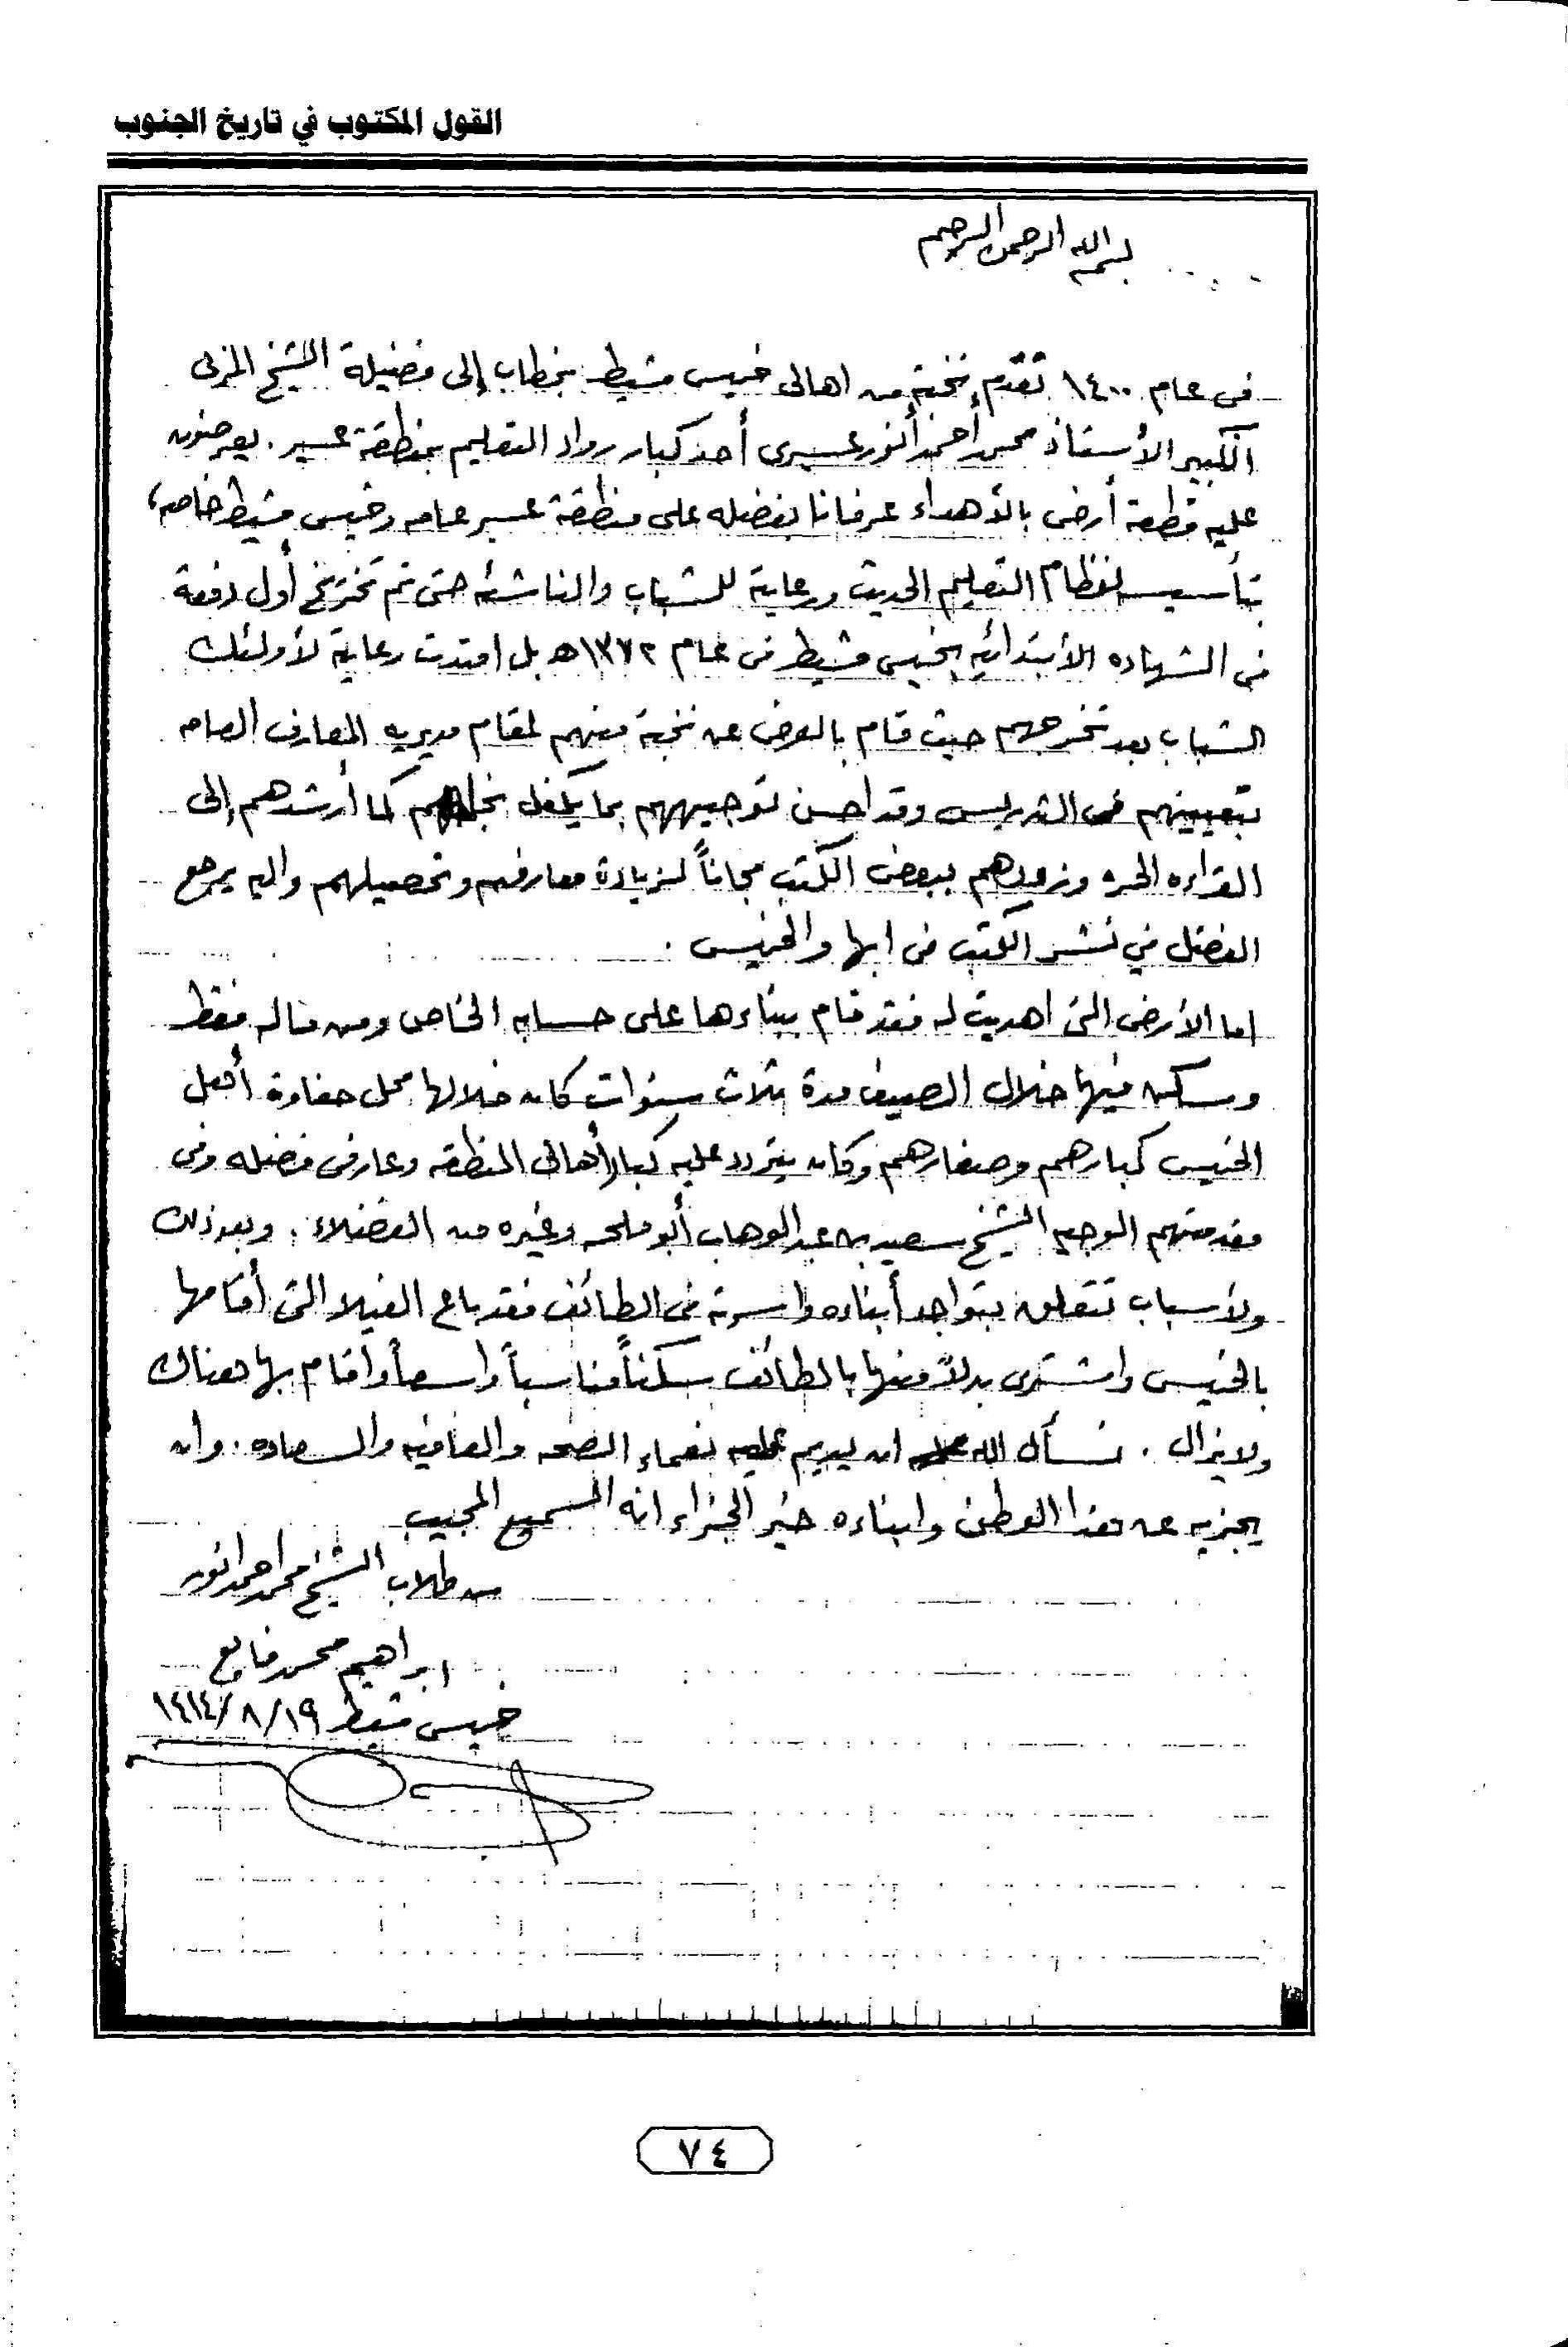 القول المكتوب في تاريخ الجنوب
بسم الله الرحمن الرحيم
فى عام ١٤٠٠ تقدم نخبة من اهالى خميس مشيط بخطاب إلى فضيلة الشيخ المربى
الكبير الأستاذ محمد أحمد أنور عسيرى أحد كبار رواد التعليم بمنطقة عسير. يعرضون
عليه قطعة أرض بالأهداء عرفانا بفضله على منطقة عسير عامه وخميس مشيط خاصه،
بتأسيس نظام التعليم الحديث ورعاية للشباب والناشئه حتى تم تخريج أول دفعة
فى الشهاده الأبتدائيه بخميس مشيط فى عام ١٣٧٢هـ بل امتدت رعاية لأولئك
الشباب بعد تخرجهم حيث قام بالعرض عن نخبة منهم لمقام مديريه المعارف العامه
بتعيينهم فى التدريس وقد احسن توجيههم بما يكفل نجاحهم كما أرشدهم إلى
القراءه الحره وزودهم ببعض الكتب مجاناً لزيادة معارفهم وتحصيلهم واليه يرجع
الفضل في نشر الكتب فى ابها والخميس .
اما الأرض التى اهديت له فقد قام ببناءها على حسابه الخاص ومن ماله فقط
وسكن فيها خلال الصيف مدة ثلاث سنوات كان خلالها محل حفاوة أهل
الخميس كبارهم وصغارهم وكان يتردد عليه كبار أهالى المنطقه وعارفى فضله وفى
مقدمتهم الوجيه الشيخ سعيد بن عبدالوهاب أبو ملحه وغيره من الفضلاء . وبعد ذلك
ولأسباب تتعلق بتواجد أبناءه واسرته فى الطائف فقد باع الفيلا التى أقامها
بالخميس واشترى بدلاً منها بالطائف سكناً مناسباً واسعاً واقام بها هناك
ولايزال . نسأل الله ان يديم عليه نعماء الصحه والعافيه والسعاده . وان
يجزيه عن هذا الوطن وابناءه خير الجزاء انه السميع المجيب
من طلاب الشيخ محمد احمد انور
ابراهيم محمد فايع
خميس مشيط ١٤١٤/٨/١٩
٧٤